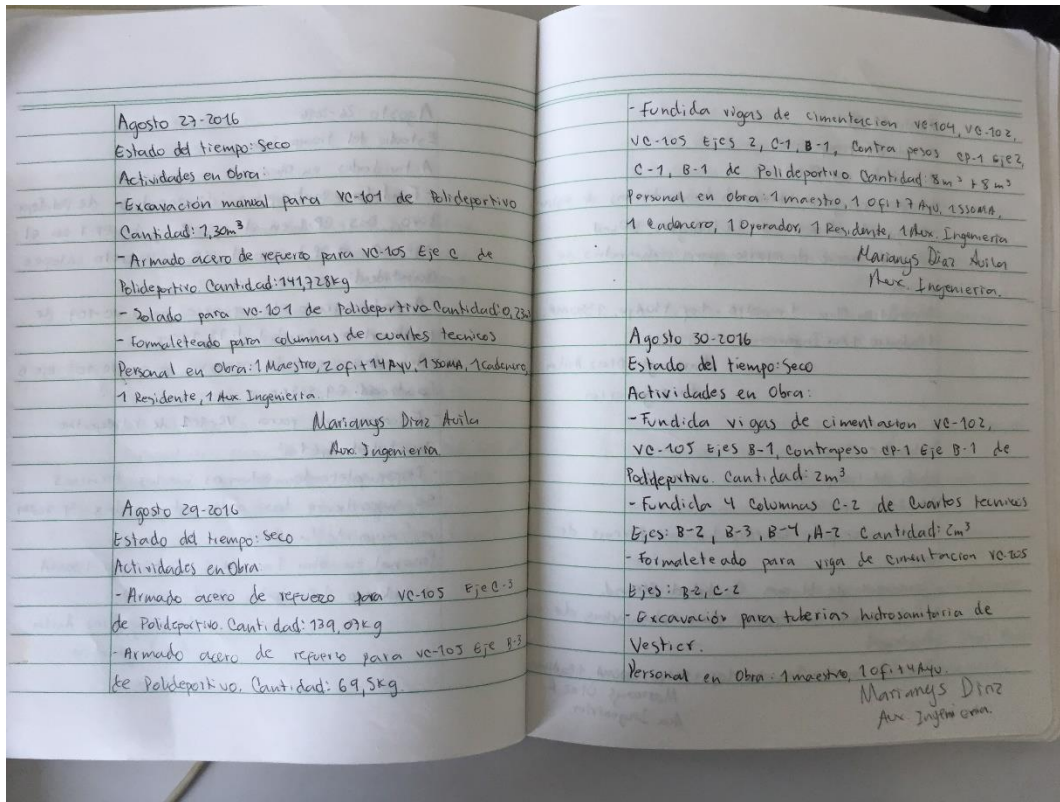 Agosto 27-2016
Estado del tiempo: Seco
Actividades en Obra:
- Excavación manual para VC-101 de Polideportivo
Cantidad: 1,30m³
- Armado acero de refuerzo para VC-105 Eje C de
Polideportivo. Cantidad: 141,728kg
- Solado para VC-101 de Polideportivo Cantidad: 0,23m
- Formaleteado para columnas de cuartos tecnicos
Personal en Obra: 1 Maestro, 2 ofi + 14 Ayu, 1 SSOMA, 1 Cadenero,
1 Residente, 1 Aux. Ingenieria.
Marianys Diaz Avila
Aux. Ingenieria
Agosto 29-2016
Estado del tiempo: Seco
Actividades en Obra
- Armado acero de refuerzo para VC-105 Eje C-3
de Polideportivo. Cantidad: 139,07kg
- Armado acero de refuerzo para VC-105 Eje B-3
de Polideportivo. Cantidad: 69,5kg
- Fundida vigas de cimentacion VC-104, VC-102,
VC-105 Ejes 2, C-1, B-1, Contra pesos CP-1 Eje 2,
C-1, B-1 de Polideportivo Cantidad: 8m³ + 8m³
Personal en obra: 1 maestro, 1 ofi + 7 Ayu, 1 SSOMA,
1 Cadenero, 1 Operador, 1 Residente, 1 Aux. Ingenieria
Marianys Diaz Avila
Aux. Ingenieria.
Agosto 30-2016
Estado del tiempo: Seco
Actividades en Obra:
- Fundida vigas de cimentacion VC-102,
VC-105 Ejes B-1, Contrapeso CP-1 Eje B-1 de
Polideportivo. Cantidad: 2m³
- Fundida 4 Columnas C-2 de Cuartos tecnicos
Ejes: B-2, B-3, B-4, A-2 Cantidad: 2m³
- Formaleteado para viga de cimentacion VC-105
Ejes: B-2, C-2
- Excavación para tuberias hidrosanitoria de
Vestier.
Personal en Obra: 1 maestro, 1 ofi + 4 Ayu.
Marianys Diaz
Aux. Ingenieria.